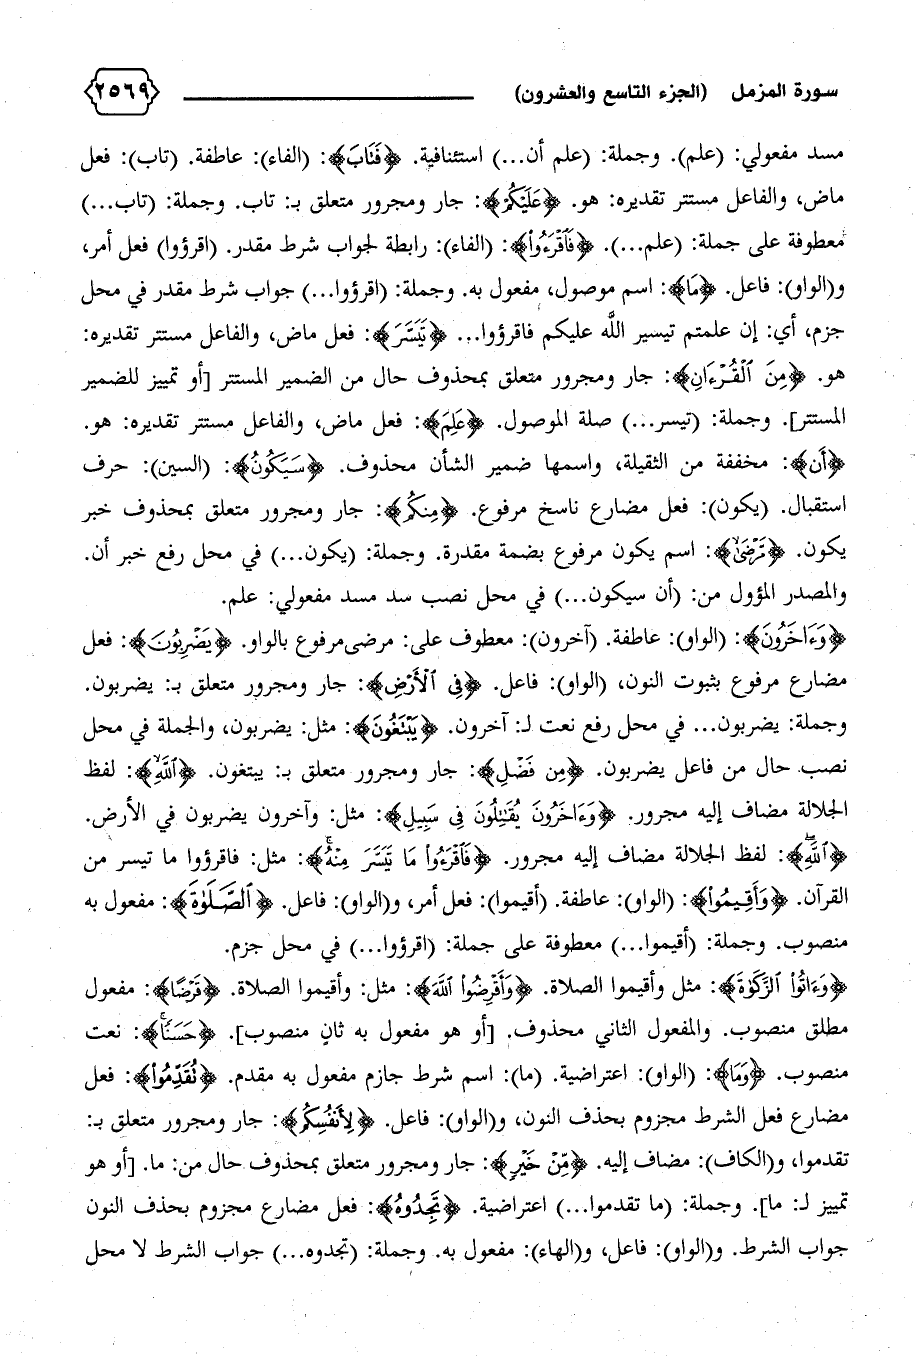 سورة المزمل (الجزء التاسع والعشرون) ٢٥٦٩
مسد مفعولي: (علم). وجملة: (علم أن...) استئنافية. ﴿فَتَابَ﴾: (الفاء): عاطفة. (تاب): فعل
ماض، والفاعل مستتر تقديره: هو. ﴿عَلَيْكُمْ﴾: جار ومجرور متعلق بـ: تاب. وجملة: (تاب...)
معطوفة على جملة: (علم...). ﴿فَاقْرَءُوا﴾: (الفاء): رابطة لجواب شرط مقدر. (اقرؤوا) فعل أمر،
و(الواو): فاعل. ﴿مَا﴾: اسم موصول، مفعول به. وجملة: (اقرؤوا...) جواب شرط مقدر في محل
جزم، أي: إن علمتم تيسير اللَّه عليكم فاقرؤوا... ﴿تَيَسَّرَ﴾: فعل ماض، والفاعل مستتر تقديره:
هو. ﴿مِنَ ٱلْقُرْءَانِ﴾: جار ومجرور متعلق بمحذوف حال من الضمير المستتر [أو تمييز للضمير
المستتر]. وجملة: (تيسر...) صلة الموصول. ﴿عَلِمَ﴾: فعل ماض، والفاعل مستتر تقديره: هو.
﴿أَن﴾: مخففة من الثقيلة، واسمها ضمير الشأن محذوف. ﴿سَيَكُونُ﴾: (السين): حرف
استقبال. (يكون): فعل مضارع ناسخ مرفوع. ﴿مِنكُم﴾: جار ومجرور متعلق بمحذوف خبر
يكون. ﴿مَّرْضَىٰ﴾: اسم يكون مرفوع بضمة مقدرة. وجملة: (يكون...) في محل رفع خبر أن.
والمصدر المؤول من: (أن سيكون...) في محل نصب سد مسد مفعولي: علم.
﴿وَءَاخَرُونَ﴾: (الواو): عاطفة. (آخرون): معطوف على: مرضى مرفوع بالواو. ﴿يَضْرِبُونَ﴾: فعل
مضارع مرفوع بثبوت النون، (الواو): فاعل. ﴿فِي ٱلْأَرْضِ﴾: جار ومجرور متعلق بـ: يضربون.
وجملة: يضربون... في محل رفع نعت لـ: آخرون. ﴿يَبْتَغُونَ﴾: مثل: يضربون، والجملة في محل
نصب حال من فاعل يضربون. ﴿مِن فَضْلِ﴾: جار ومجرور متعلق بـ: يبتغون. ﴿ٱللَّهِ﴾: لفظ
الجلالة مضاف إليه مجرور. ﴿وَءَاخَرُونَ يُقَٰتِلُونَ فِى سَبِيلِ﴾: مثل: وآخرون يضربون في الأرض.
﴿ٱللَّهِ﴾: لفظ الجلالة مضاف إليه مجرور. ﴿فَاقْرَءُوا مَا تَيَسَّرَ مِنْهُ﴾: مثل: فاقرؤوا ما تيسر من
القرآن. ﴿وَأَقِيمُوا﴾: (الواو): عاطفة. (أقيموا): فعل أمر، و(الواو): فاعل. ﴿ٱلصَّلَوٰةَ﴾: مفعول به
منصوب. وجملة: (أقيموا...) معطوفة على جملة: (اقرؤوا...) في محل جزم.
﴿وَءَاتُوا ٱلزَّكَوٰةَ﴾: مثل وأقيموا الصلاة. ﴿وَأَقْرِضُوا ٱللَّهَ﴾: مثل: وأقيموا الصلاة. ﴿قَرْضًا﴾: مفعول
مطلق منصوب. والمفعول الثاني محذوف. [أو هو مفعول به ثانٍ منصوب]. ﴿حَسَنًا﴾: نعت
منصوب. ﴿وَمَا﴾: (الواو): اعتراضية. (ما): اسم شرط جازم مفعول به مقدم. ﴿تُقَدِّمُوا﴾: فعل
مضارع فعل الشرط مجزوم بحذف النون، و(الواو): فاعل. ﴿لِأَنفُسِكُم﴾: جار ومجرور متعلق بـ:
تقدموا، و(الكاف): مضاف إليه. ﴿مِّنْ خَيْرٍ﴾: جار ومجرور متعلق بمحذوف حال من: ما. [أو هو
تمييز لـ: ما]. وجملة: (ما تقدموا...) اعتراضية. ﴿تَجِدُوهُ﴾: فعل مضارع مجزوم بحذف النون
جواب الشرط. و(الواو): فاعل، و(الهاء): مفعول به. وجملة: (تجدوه...) جواب الشرط لا محل